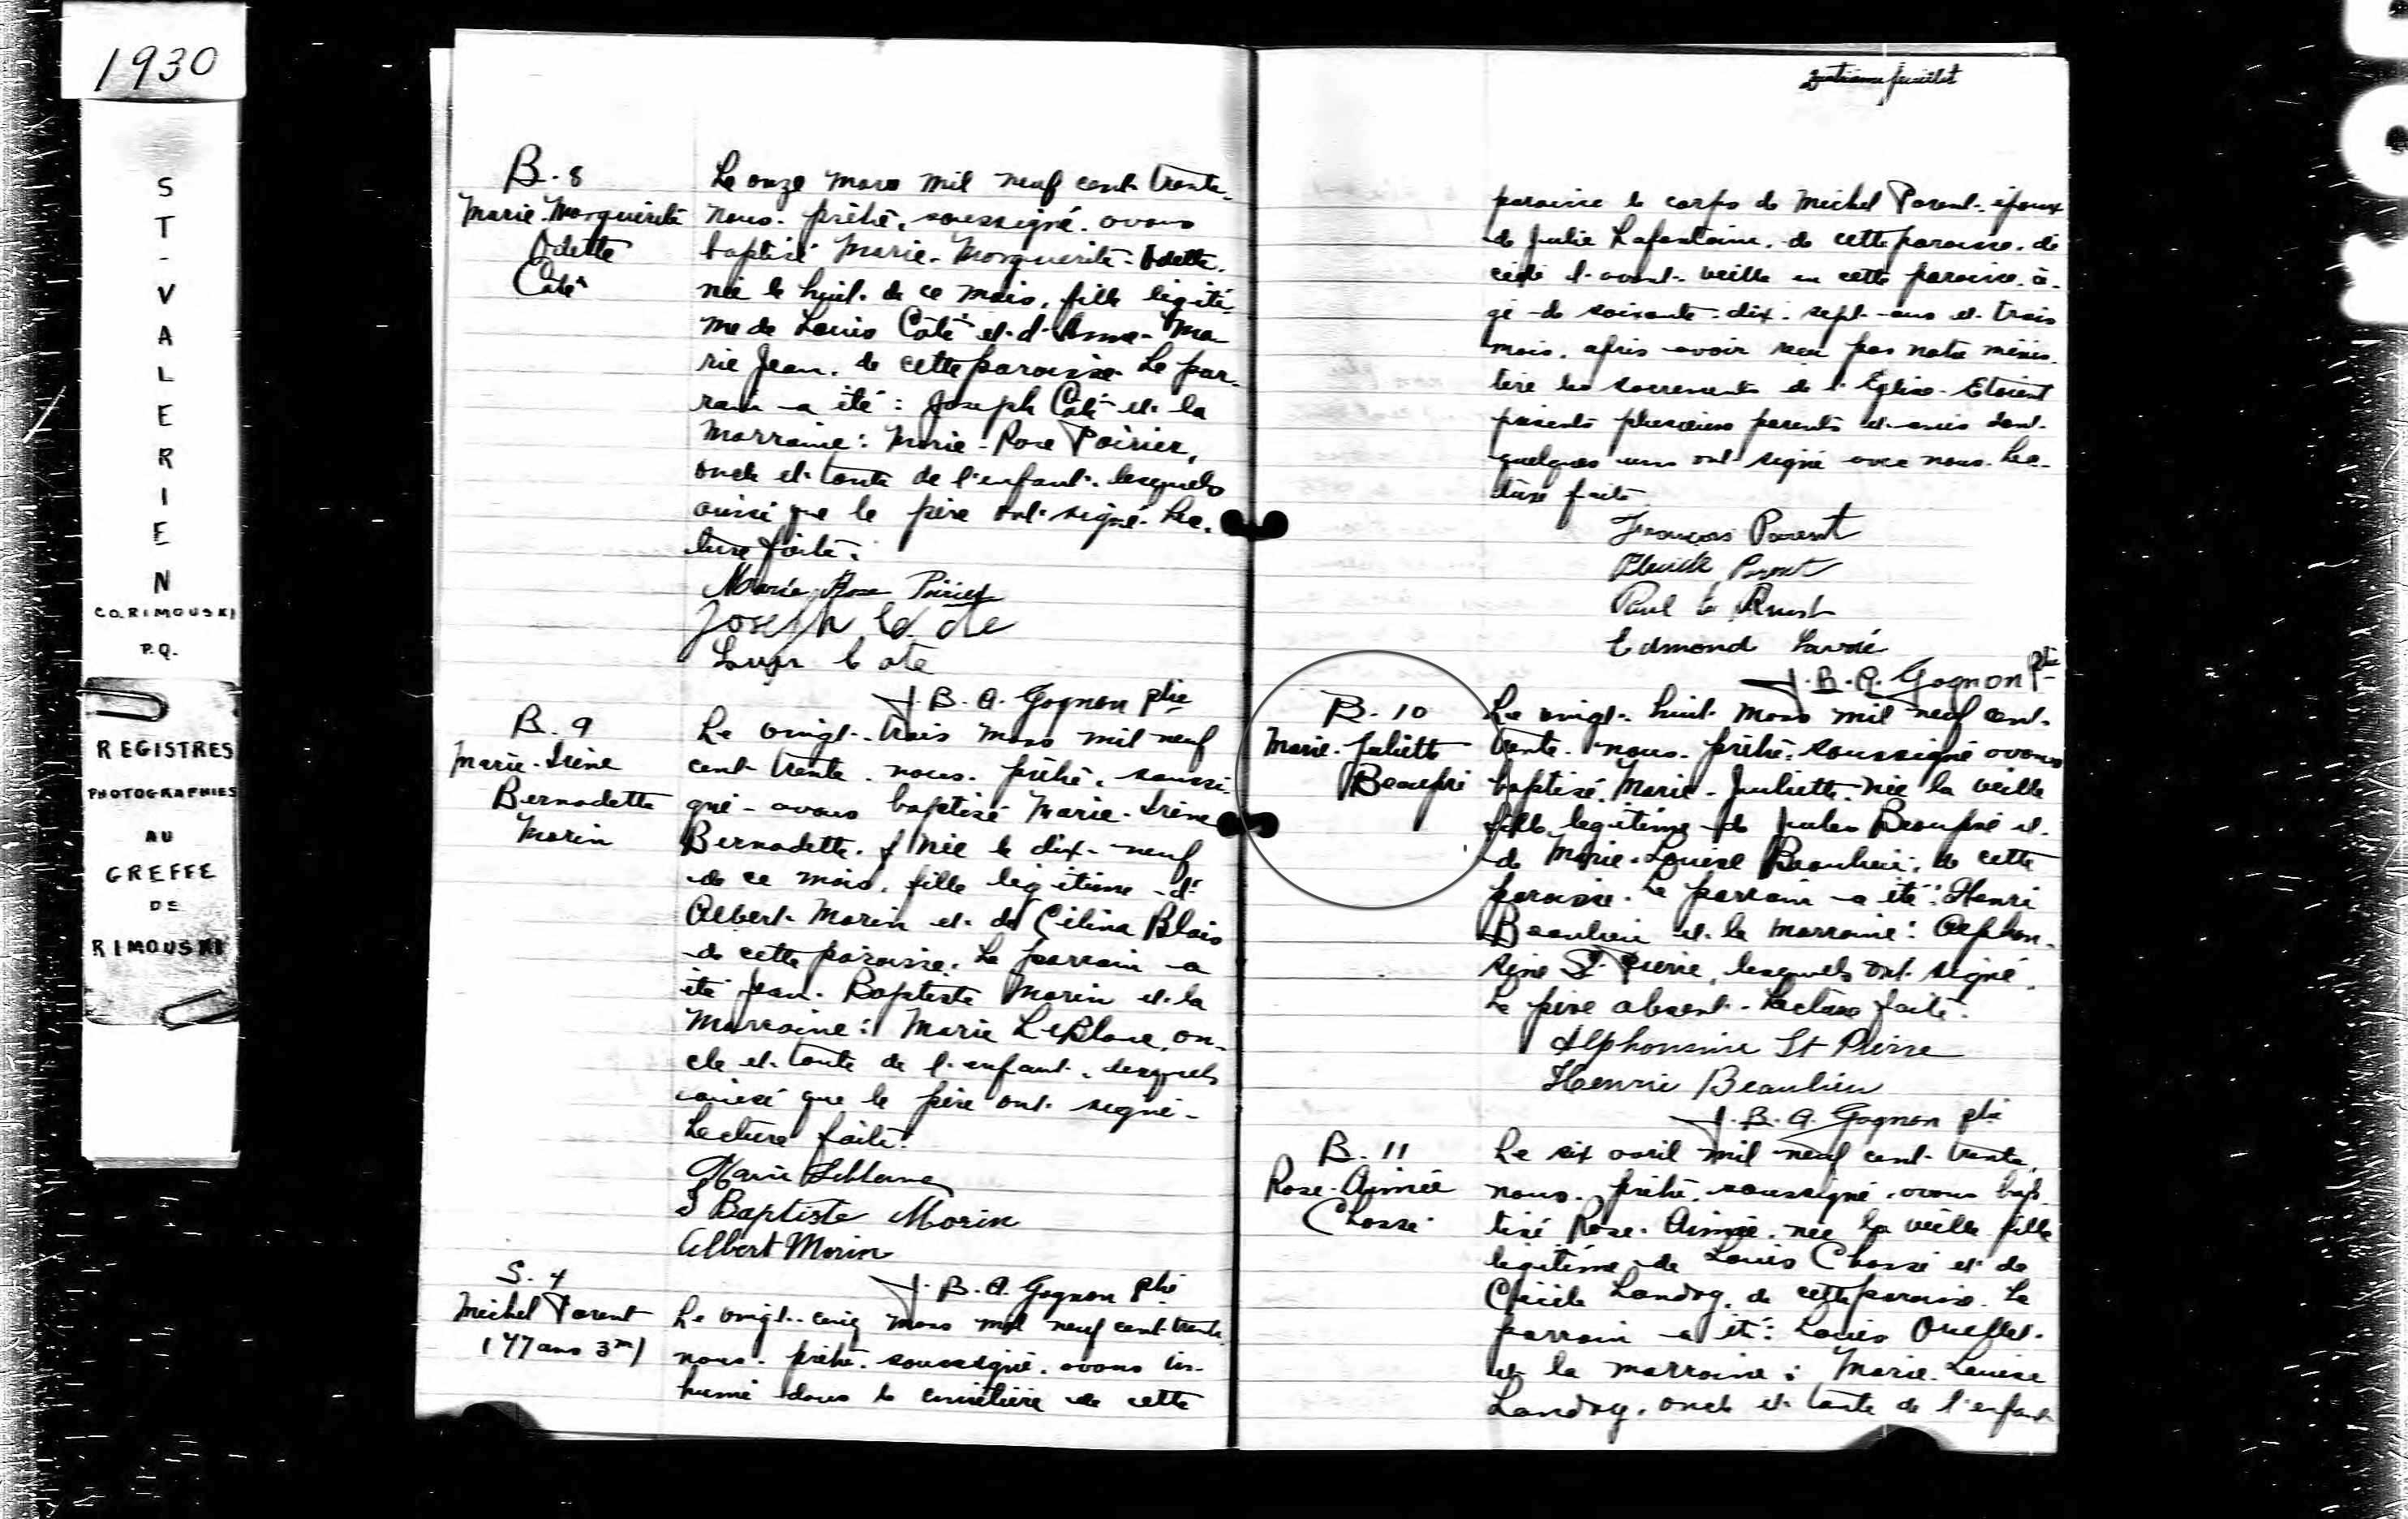 1930
ST-VALERIEN
CO. RIMOUSKI
P.Q.
REGISTRES
PHOTOGRAPHIES
AU
GREFFE
DE
RIMOUSKI
B. 8
Marie-Marguerite
Odette
Côté
Le onze mars mil neuf cent trente
nous, prêtre, soussigné, avons
baptisé Marie-Marguerite-Odette,
née le huit de ce mois, fille légiti-
me de Louis Côté et d'Anna-Ma-
rie Jean, de cette paroisse. Le par-
rain a été: Joseph Côté et la
marraine: Marie-Rose Poirier,
oncle et tante de l'enfant, lesquels
ainsi que le père ont signé. Lec-
ture faite.
Marie Rose Poirier
Joseph Côté
Louis Cote
J. B. A. Gagnon ptre
B. 9
Marie-Irène
Bernadette
Morin
Le vingt-trois mars mil neuf
cent trente, nous, prêtre, soussi-
gné, avons baptisé Marie-Irène
Bernadette, née le dix-neuf
de ce mois, fille légitime d'
Albert Morin et de Célina Blais
de cette paroisse. Le parrain a
été Jean-Baptiste Morin et la
marraine: Marie LeBlanc, on-
cle et tante de l'enfant, lesquels
ainsi que le père ont signé.
Lecture faite.
Marie Leblanc
J Baptiste Morin
Albert Morin
J. B. A. Gagnon ptre
S. 4
Michel Parent
(77 ans 3m)
Le vingt-cinq mars mil neuf cent trente
nous, prêtre, soussigné, avons in-
humé dans le cimetière de cette
feuillet
paroisse le corps de Michel Parent, époux
de Julie Lafontaine, de cette paroisse, dé-
cédé l'avant-veille en cette paroisse, â-
gé de soixante-dix-sept ans et trois
mois, après avoir reçu par notre minis-
tère les sacrements de l'Église. Etaient
présents plusieurs parents et amis dont
quelques uns ont signé avec nous. Lec-
ture faite
François Parent
Parent
Paul
Edmond Lavoie
J. B. A. Gagnon Ptre
B. 10
Marie-Juliette
Beaupré
Le vingt-huit mars mil neuf cent
trente, nous, prêtre, soussigné avons
baptisé Marie-Juliette, née la veille
fille légitime de Jules Beaupré et
de Marie-Louise Beaulieu, de cette
paroisse. Le parrain a été: Henri
Beaulieu et la marraine: Alphon-
sine St-Pierre, lesquels ont signé.
Le père absent. Lecture faite.
Alphonsine St Pierre
Henrie Beaulieu
J. B. A. Gagnon ptre
B. 11
Rose-Aimée
Chassé
Le six avril mil neuf cent trente,
nous, prêtre, soussigné, avons bap-
tisé Rose-Aimée, née la veille fille
légitime de Louis Chassé et de
Cécile Landry, de cette paroisse. Le
parrain a été: Louis Ouellet
et la marraine: Marie-Louise
Landry, oncle et tante de l'enfant